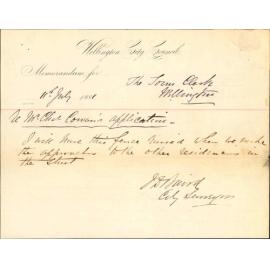 Wellington City Council
Memorandum for
The Town Clerk
Wellington
11th July 1888
Re Mr Chst Cowan's application
I will have this fence moved when we make
the approaches to the other residences in
the Street
J D Baird
City Surveyor